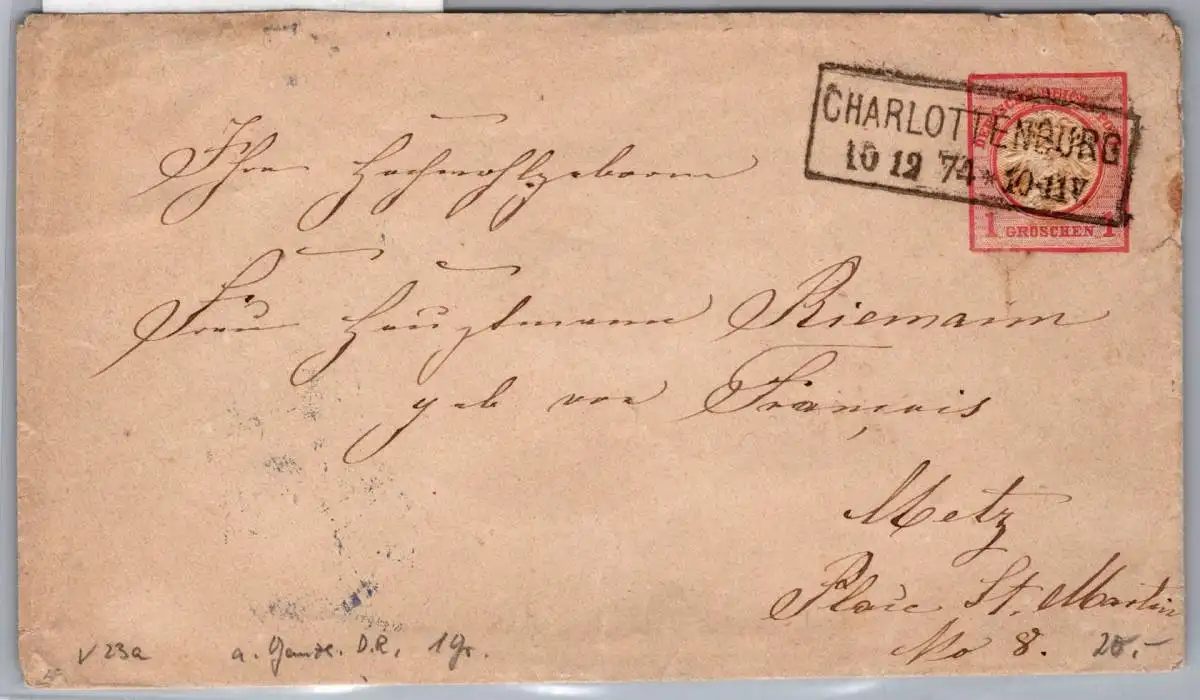 CHARLOTTENBURG
10 12 74 * 10-11V
DEUTSCHE REICHSPOST
1 GROSCHEN 1
Ihrer Hochwohlgeboren
Frau Hauptmann Riemann
geb von François
Metz
Place St. Martin
No 8.
√ 23a
D.R. 1 Gr.
20.-